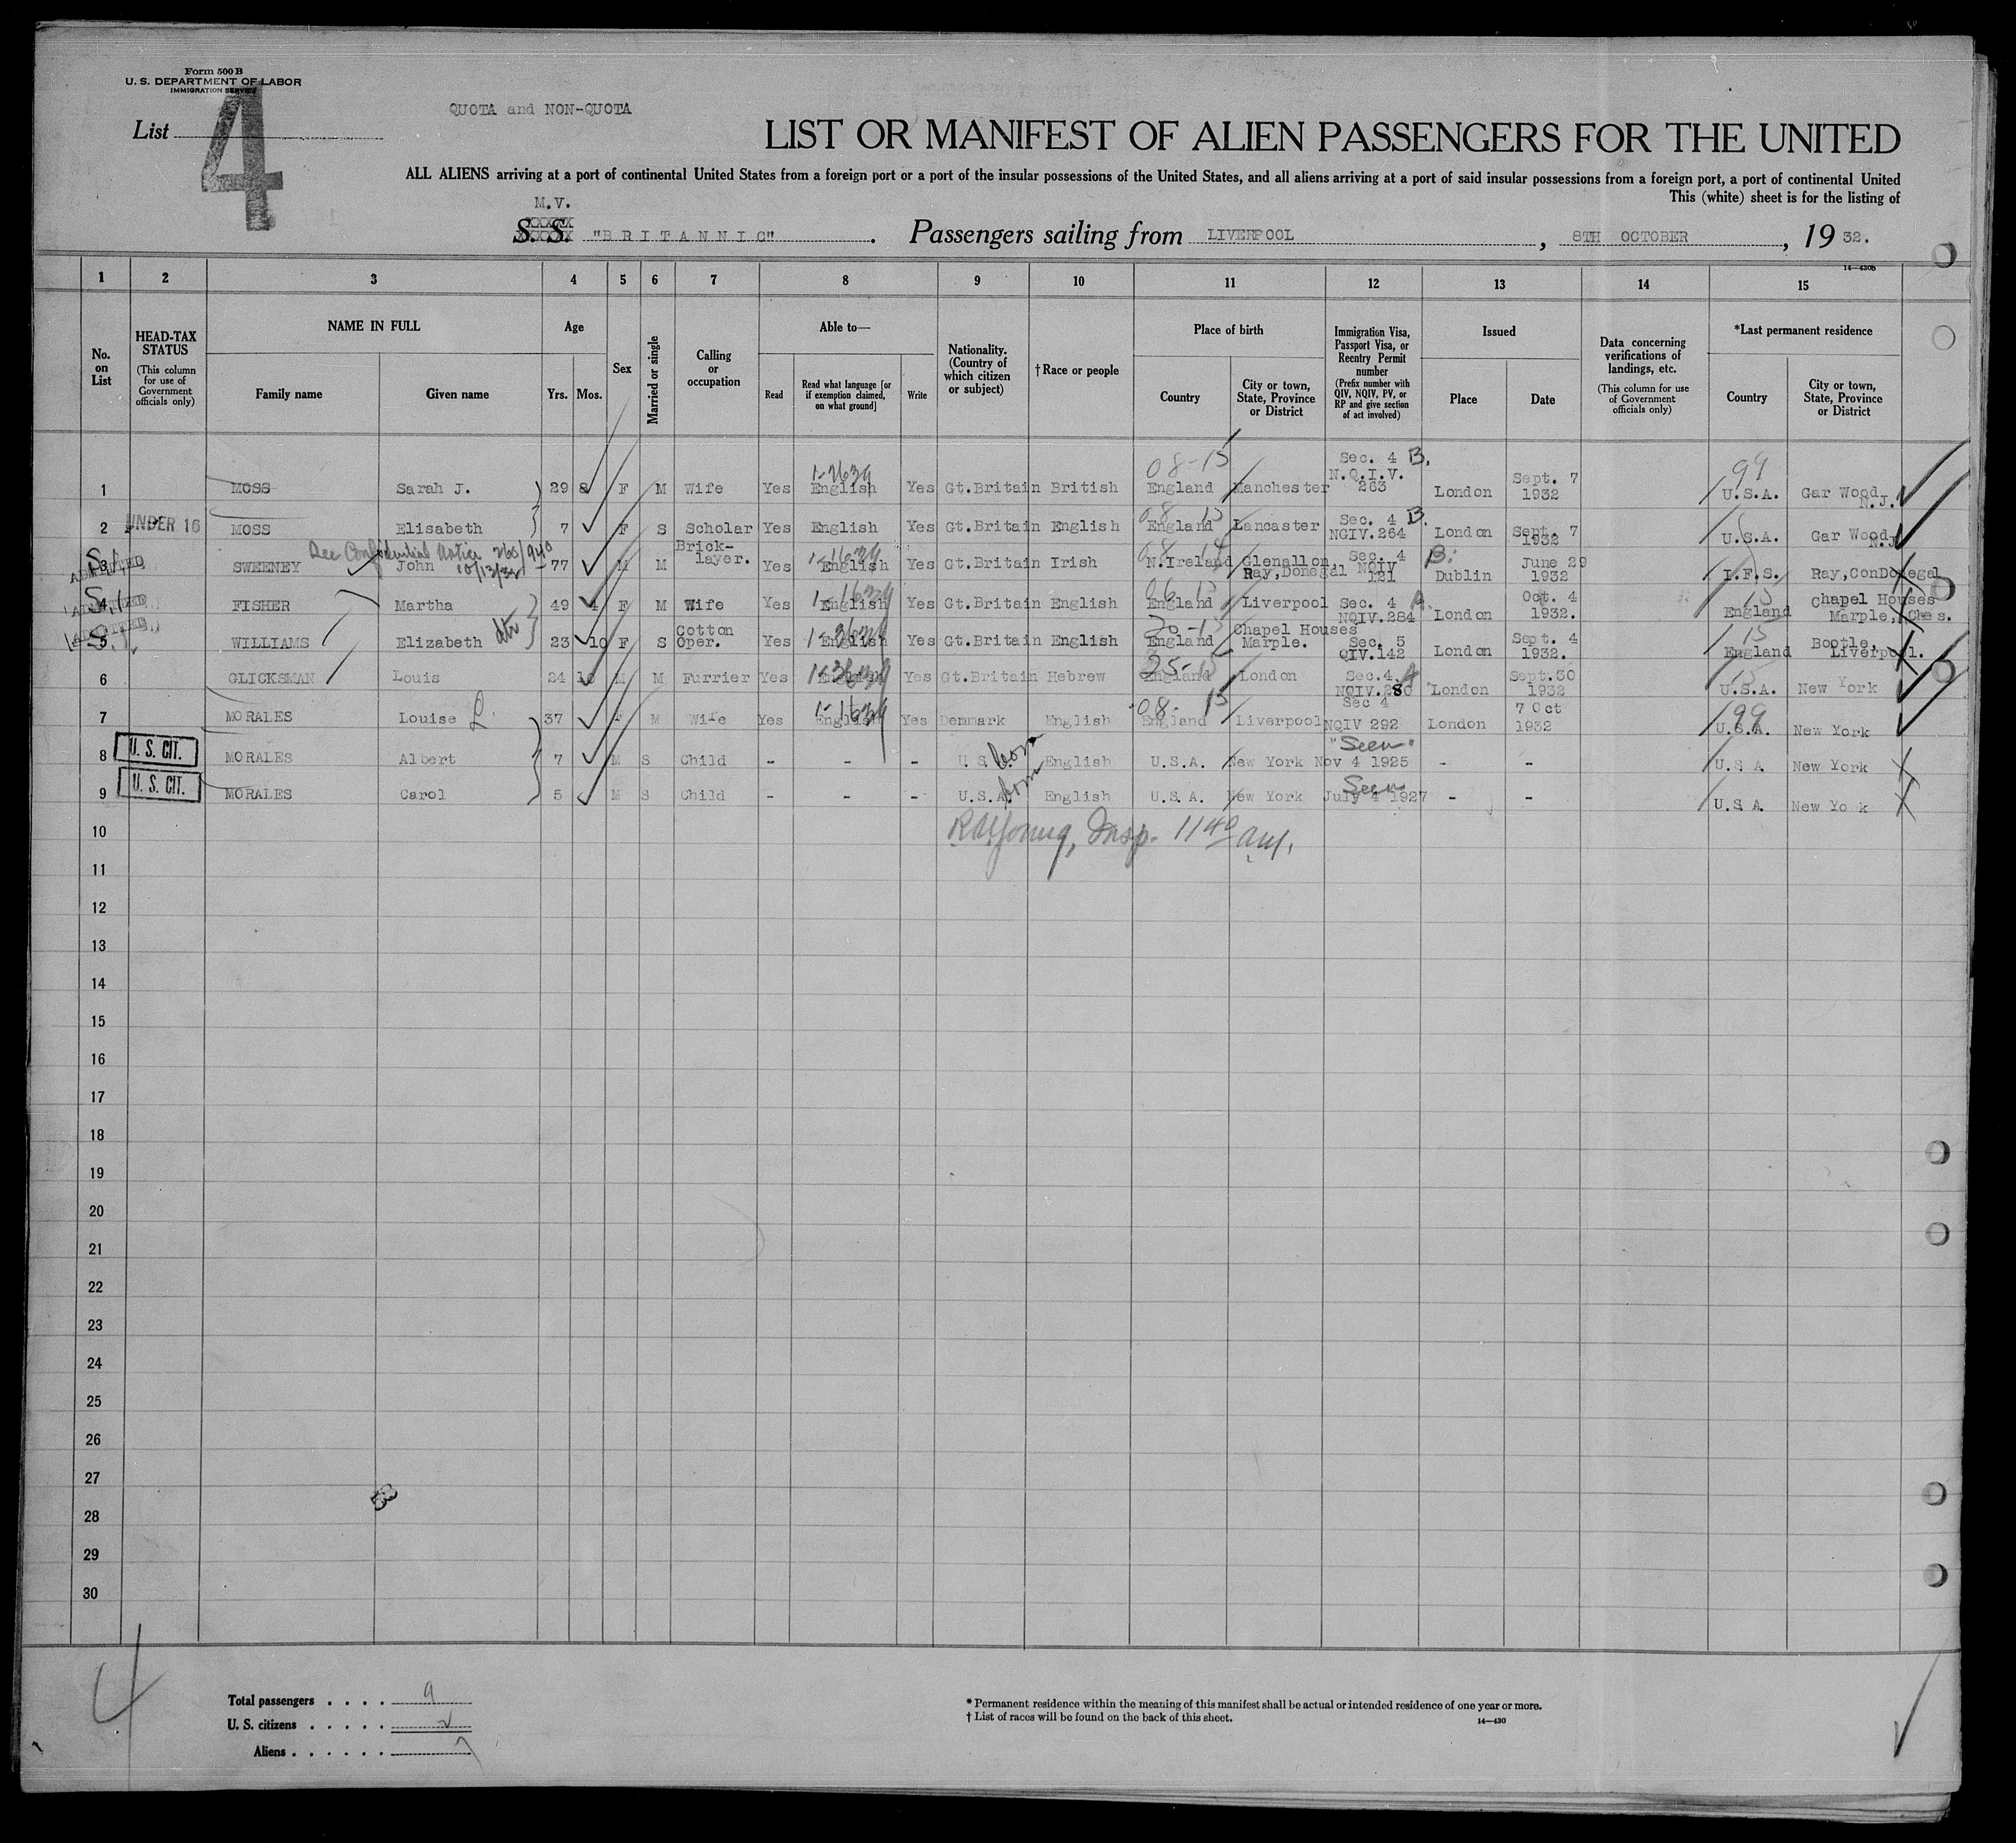 Form 500 B
U. S. DEPARTMENT OF LABOR
IMMIGRATION SERVICE
List 4
QUOTA and NON-QUOTA
LIST OR MANIFEST OF ALIEN PASSENGERS FOR THE UNITED
ALL ALIENS arriving at a port of continental United States from a foreign port or a port of the insular possessions of the United States, and all aliens arriving at a port of said insular possessions from a foreign port, a port of continental United
This (white) sheet is for the listing of
M.V.
S. S. "BRITANNIC". Passengers sailing from LIVERPOOL, 8TH OCTOBER, 19 32.
14-430B
1 2 3 4 5 6 7 8 9 10 11 12 13 14 15
No. on List
HEAD-TAX STATUS
(This column for use of Government officials only)
NAME IN FULL
Family name Given name
Age
Yrs. Mos.
Sex
Married or single
Calling or occupation
Able to—
Read Read what language [or if exemption claimed, on what ground] Write
Nationality. (Country of which citizen or subject)
† Race or people
Place of birth
Country City or town, State, Province or District
Immigration Visa, Passport Visa, or Reentry Permit number
(Prefix number with QIV, NQIV, PV, or RP and give section of act involved)
Issued
Place Date
Data concerning verifications of landings, etc.
(This column for use of Government officials only)
*Last permanent residence
Country City or town, State, Province or District
1 MOSS Sarah J. 29 8 F M Wife Yes English Yes Gt.Britain British England Manchester Sec. 4 B. N.Q.I.V. 263 London Sept. 7 1932 U.S.A. Gar Wood N.J.
08-15 99
2 UNDER 16 MOSS Elisabeth 7 F S Scholar Yes English Yes Gt.Britain English England Lancaster Sec. 4 B. NGIV.264 London Sept. 7 1932 U.S.A. Gar Wood N.J.
See Confidential Notice 10/13/32
3 ADMITTED SWEENEY John 77 M M Brick-layer. Yes English Yes Gt.Britain Irish N.Ireland Glenallon Ray, Donegal Sec. 4 B. NQIV 121 Dublin June 29 1932 I.F.S. Ray,ConDonegal
4 ADMITTED FISHER Martha 49 4 F M Wife Yes English Yes Gt.Britain English England Liverpool Sec. 4 A. NQIV.284 London Oct. 4 1932. England Chapel Houses Marple, Ches.
5 ADMITTED WILLIAMS Elizabeth 23 10 F S Cotton Oper. Yes English Yes Gt.Britain English England Chapel Houses Marple. Sec. 5 QIV.142 London Sept. 4 1932. England Bootle, Liverpool.
6 GLICKSMAN Louis 24 10 M M Furrier Yes English Yes Gt.Britain Hebrew England London Sec.4 A NQIV.280 London Sept.30 1932 U.S.A. New York
7 MORALES Louise L. 37 F M Wife Yes English Yes Denmark English England Liverpool Sec 4 NQIV 292 London 7 Oct 1932 U.S.A. New York
08-15 99
8 U. S. CIT. MORALES Albert 7 M S Child - - - U S born English U.S.A. New York "Seen" Nov 4 1925 - - U.S A New York
9 U. S. CIT. MORALES Carol 5 M S Child - - - U.S.A. born English U.S.A. New York Seen July 4 1927 - - U.S A. New Yo k
10 R A Young, Insp. 11 40 am.
11
12
13
14
15
16
17
18
19
20
21
22
23
24
25
26
27
28
29
30
4
Total passengers . . . . 9
U. S. citizens . . . . . 2
Aliens . . . . . . 7
* Permanent residence within the meaning of this manifest shall be actual or intended residence of one year or more.
† List of races will be found on the back of this sheet.
14-430